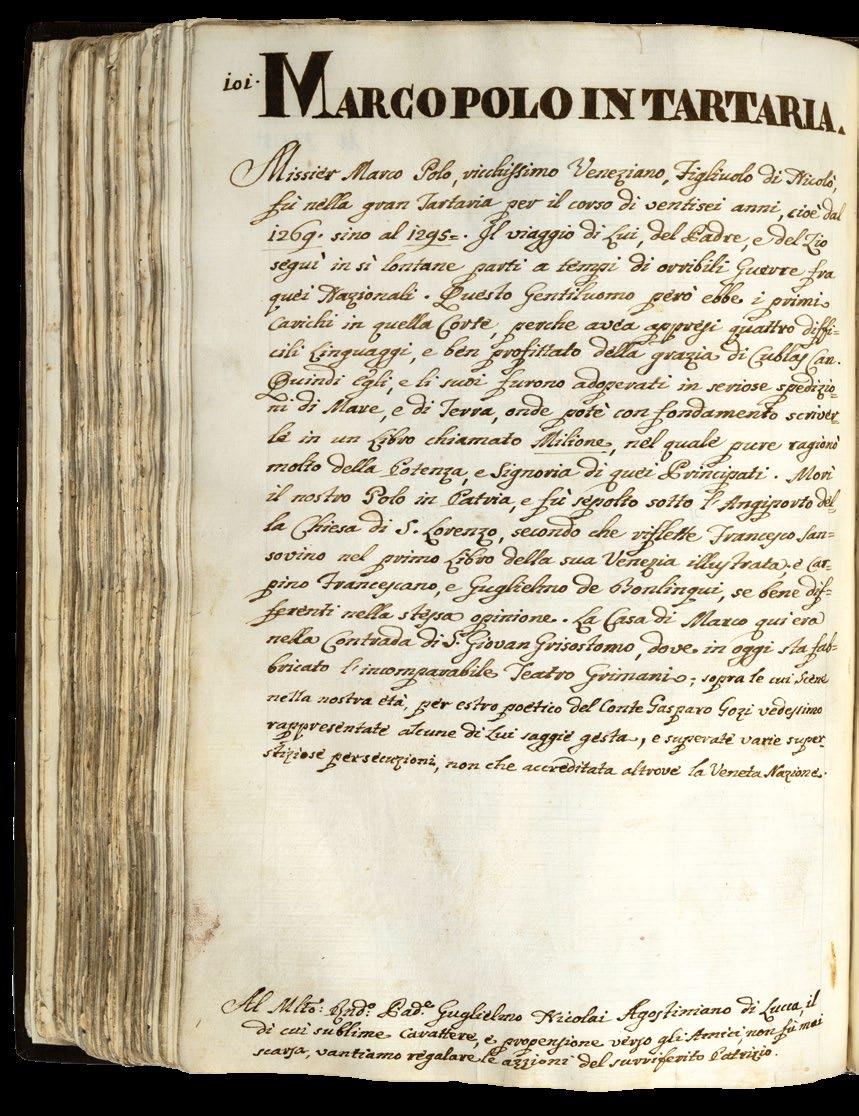 101. MARCO POLO IN TARTARIA.
Missier Marco Polo, ricchissimo Veneziano, Figliuolo di Nicolò,
fù nella gran Tartaria per il corso di ventisei anni, cioè dal
1269. sino al 1295=. Il viaggio di Lui, del Padre, e del Zio
seguì in sì lontane parti a tempi di orribili Guerre fra
quei Nazionali. Questo Gentiluomo però ebbe i primi
Carichi in quella Corte, perche avea appresi quattro diffi=
cili Linguaggi, e ben profittato della grazia di Cublaj Can.
Quindi Egli, e li suoi furono adoperati in seriose spedizio=
ni di Mare, e di Terra, onde potè con fondamento scriver=
le in un Libro chiamato Milione, nel quale pure ragionò
molto della Potenza, e Signoria di quei Principati. Morì
il nostro Polo in Patria, e fù sepolto sotto l'Angiporto del=
la Chiesa di S. Lorenzo, secondo che riflette Francesco San=
sovino nel primo Libro della sua Venezia illustrata, e Car=
pino Francescano, e Guglielmo de Bonlinqui, se bene dif=
ferenti nella stessa opinione. La Casa di Marco qui era
nella Contrada di S. Giovan Grisostomo, dove in oggi sta fab=
bricato l'incomparabile Teatro Grimani; sopra le cui Scene
nella nostra età, per estro poetico del Conte Gasparo Gozi vedessimo
rappresentate alcune di Lui saggie gesta, e superate varie super=
stiziose persecuzioni, non che accreditata altrove la Veneta Nazione.
Al Mlto. Rndo. Pade. Guglielmo Nicolai Agostiniano di Lucca, il
di cui sublime Carattere, e propensione verso gli Amici, non fù mai
scarsa, vantiamo regalare le azzioni del surriferito Patrizio.